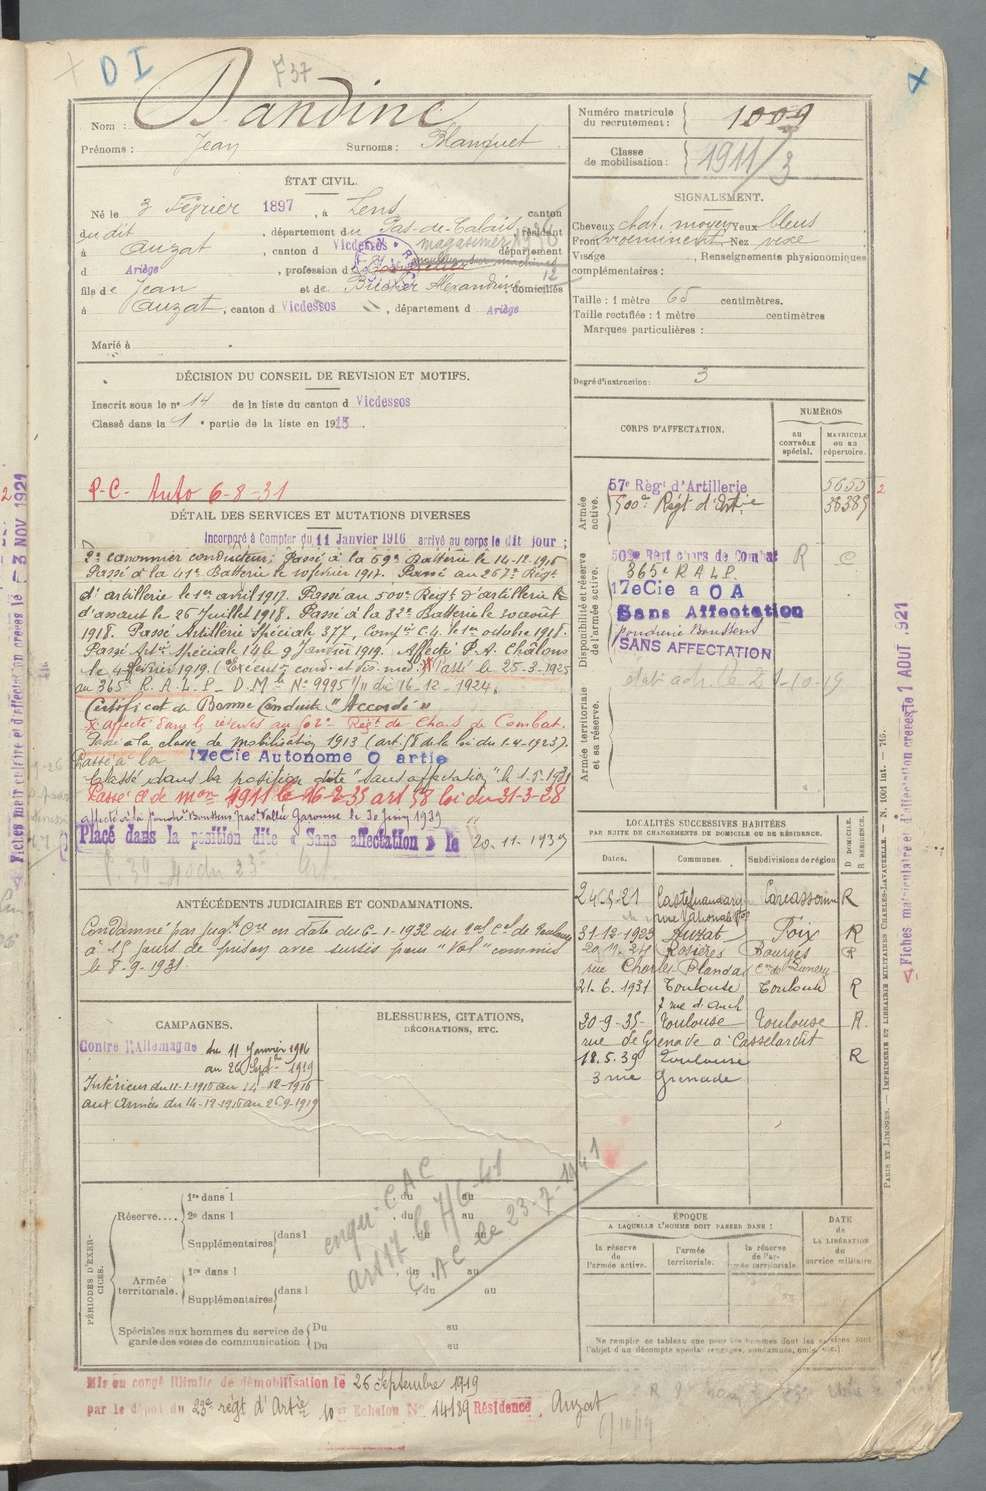 D I
F 37
Nom : Dandine
Prénoms : Jean Surnoms : Blanquet
ÉTAT CIVIL.
Né le 3 Février 1897, à Lens canton
du dit, département du Pas-de-Calais, résidant
à Auzat, canton d Vicdessos magasinier 1936 département
d Ariège, profession de mouleur sur machines
fils de Jean et de Alexandrine, domiciliés
à Auzat, canton d Vicdessos, département d Ariège
Marié à
DÉCISION DU CONSEIL DE REVISION ET MOTIFS.
Inscrit sous le nº 14 de la liste du canton d Vicdessos
Classé dans la 1e partie de la liste en 1915.
P.C. Auto 6-8-31
DÉTAIL DES SERVICES ET MUTATIONS DIVERSES
Incorporé à Compter du 11 Janvier 1916 arrivé au corps le dit jour ;
2e canonnier conducteur ; Passé à la 69e Batterie le 14-12-1916
Passé à la 41e Batterie le 10 février 1917. Passé au 267e Régt
d'artillerie le 1er avril 1917. Passé au 500e Régt d'artillerie
d'assaut le 26 Juillet 1918. Passé à la 82e Batterie le 30 août
1918. Passé Artillerie Spéciale 377, Compie C4 le 1er octobre 1918.
Passé Artie Spéciale 14 le 9 Janvier 1919. Affecté P.A. Châlons
le 4 février 1919. Passé le 25-3-1925
au 365e R.A.L.P. D.M. Nº 9995 du 16-12-1924.
Certificat de Bonne Conduite "Accordé"
X affecté dans les réserves au 502e Régt de Chars de Combat.
Passé à la classe de mobilisation 1913 (art. 58 de la loi du 1-4-1923).
Passé à la 17eCie Autonome O artie
Classé dans la position dite "sans affectation" le 1-5-1931
Passé Cl de mon 1911 le 16-2-35 art 58 loi du 31-3-28
affecté à la fondrie Boussens par Vallée Garonne le 30 Juin 1939
Placé dans la position dite « Sans affectation » le 20-11-1939
ANTÉCÉDENTS JUDICIAIRES ET CONDAMNATIONS.
Condamné par jugt Cre en date du 6-1-1932 du de Toulouse
à 15 jours de prison avec sursis pour "Vol" commis
le 8-9-1931.
CAMPAGNES.
Contre l'Allemagne du 11 Janvier 1916
au 26 Septre 1919
Intérieur du 11-1-1916 au 14-12-1916
aux Armées du 14-12-1916 au 26-9-1919
BLESSURES, CITATIONS,
DÉCORATIONS, ETC.
PÉRIODES D'EXERCICES.
Réserve.... 1re dans l , du au
2e dans l , du au
Supplémentaires dans l , du au
Armée territoriale. 1re dans l , du au
Supplémentaires dans l , du au
Spéciales aux hommes du service de garde des voies de communication Du au
Du au
enqu. CAC
art 17 le 7/6-41
CAC le 23-7-1941
Mis en congé illimité de démobilisation le 26 Septembre 1919
par le dépot du 23e régt d'Artie 10e Echelon Nº 14189 Résidence Auzat
Numéro matricule
du recrutement : 1009
Classe
de mobilisation : 1911/3
SIGNALEMENT.
Cheveux chat. moyen Yeux bleus
Front proéminent Nez vexe
Visage , Renseignements physionomiques
complémentaires :
Taille : 1 mètre 65 centimètres.
Taille rectifiée : 1 mètre centimètres
Marques particulières :
Degré d'instruction : 3
CORPS D'AFFECTATION.
NUMÉROS
AU CONTRÔLE spécial.
MATRICULE OU AU répertoire.
Armée active.
57e Régt d'Artillerie 5655
500e Régt d'Artie 38385
Disponibilité et réserve de l'armée active.
502e Régt chars de Combat R C
365e R A L P.
17eCie a O A
Sans Affectation
fonderie Boussens
SANS AFFECTATION
Armée territoriale et sa réserve.
LOCALITÉS SUCCESSIVES HABITÉES
PAR SUITE DE CHANGEMENTS DE DOMICILE OU DE RÉSIDENCE.
Dates. Communes. Subdivisions de région D DOMICILE. R RÉSIDENCE.
24-5-21 Castelnaudary Carcassonne R
31-12-1923 Auzat Foix R
Rosières Bourges R
rue Charles Blanda
21-6-1931 Toulouse Toulouse R
7 rue d'Auch
20-9-35 Toulouse Toulouse R.
rue de Grenade à Casselardit
18.5.39 Toulouse R
3 rue Grenade
ÉPOQUE
A LAQUELLE L'HOMME DOIT PASSER DANS :
la réserve de l'armée active.
l'armée territoriale.
la réserve de l'armée territoriale.
DATE de LA LIBÉRATION du service militaire
Ne remplir ce tableau que pour les hommes dont les services font
l'objet d'un décompte spécial (engagés, condamnés, omis, etc.)
PARIS ET LIMOGES. — IMPRIMERIE ET LIBRAIRIE MILITAIRES CHARLES-LAVAUZELLE. — N. 1001 int. — 7-15.